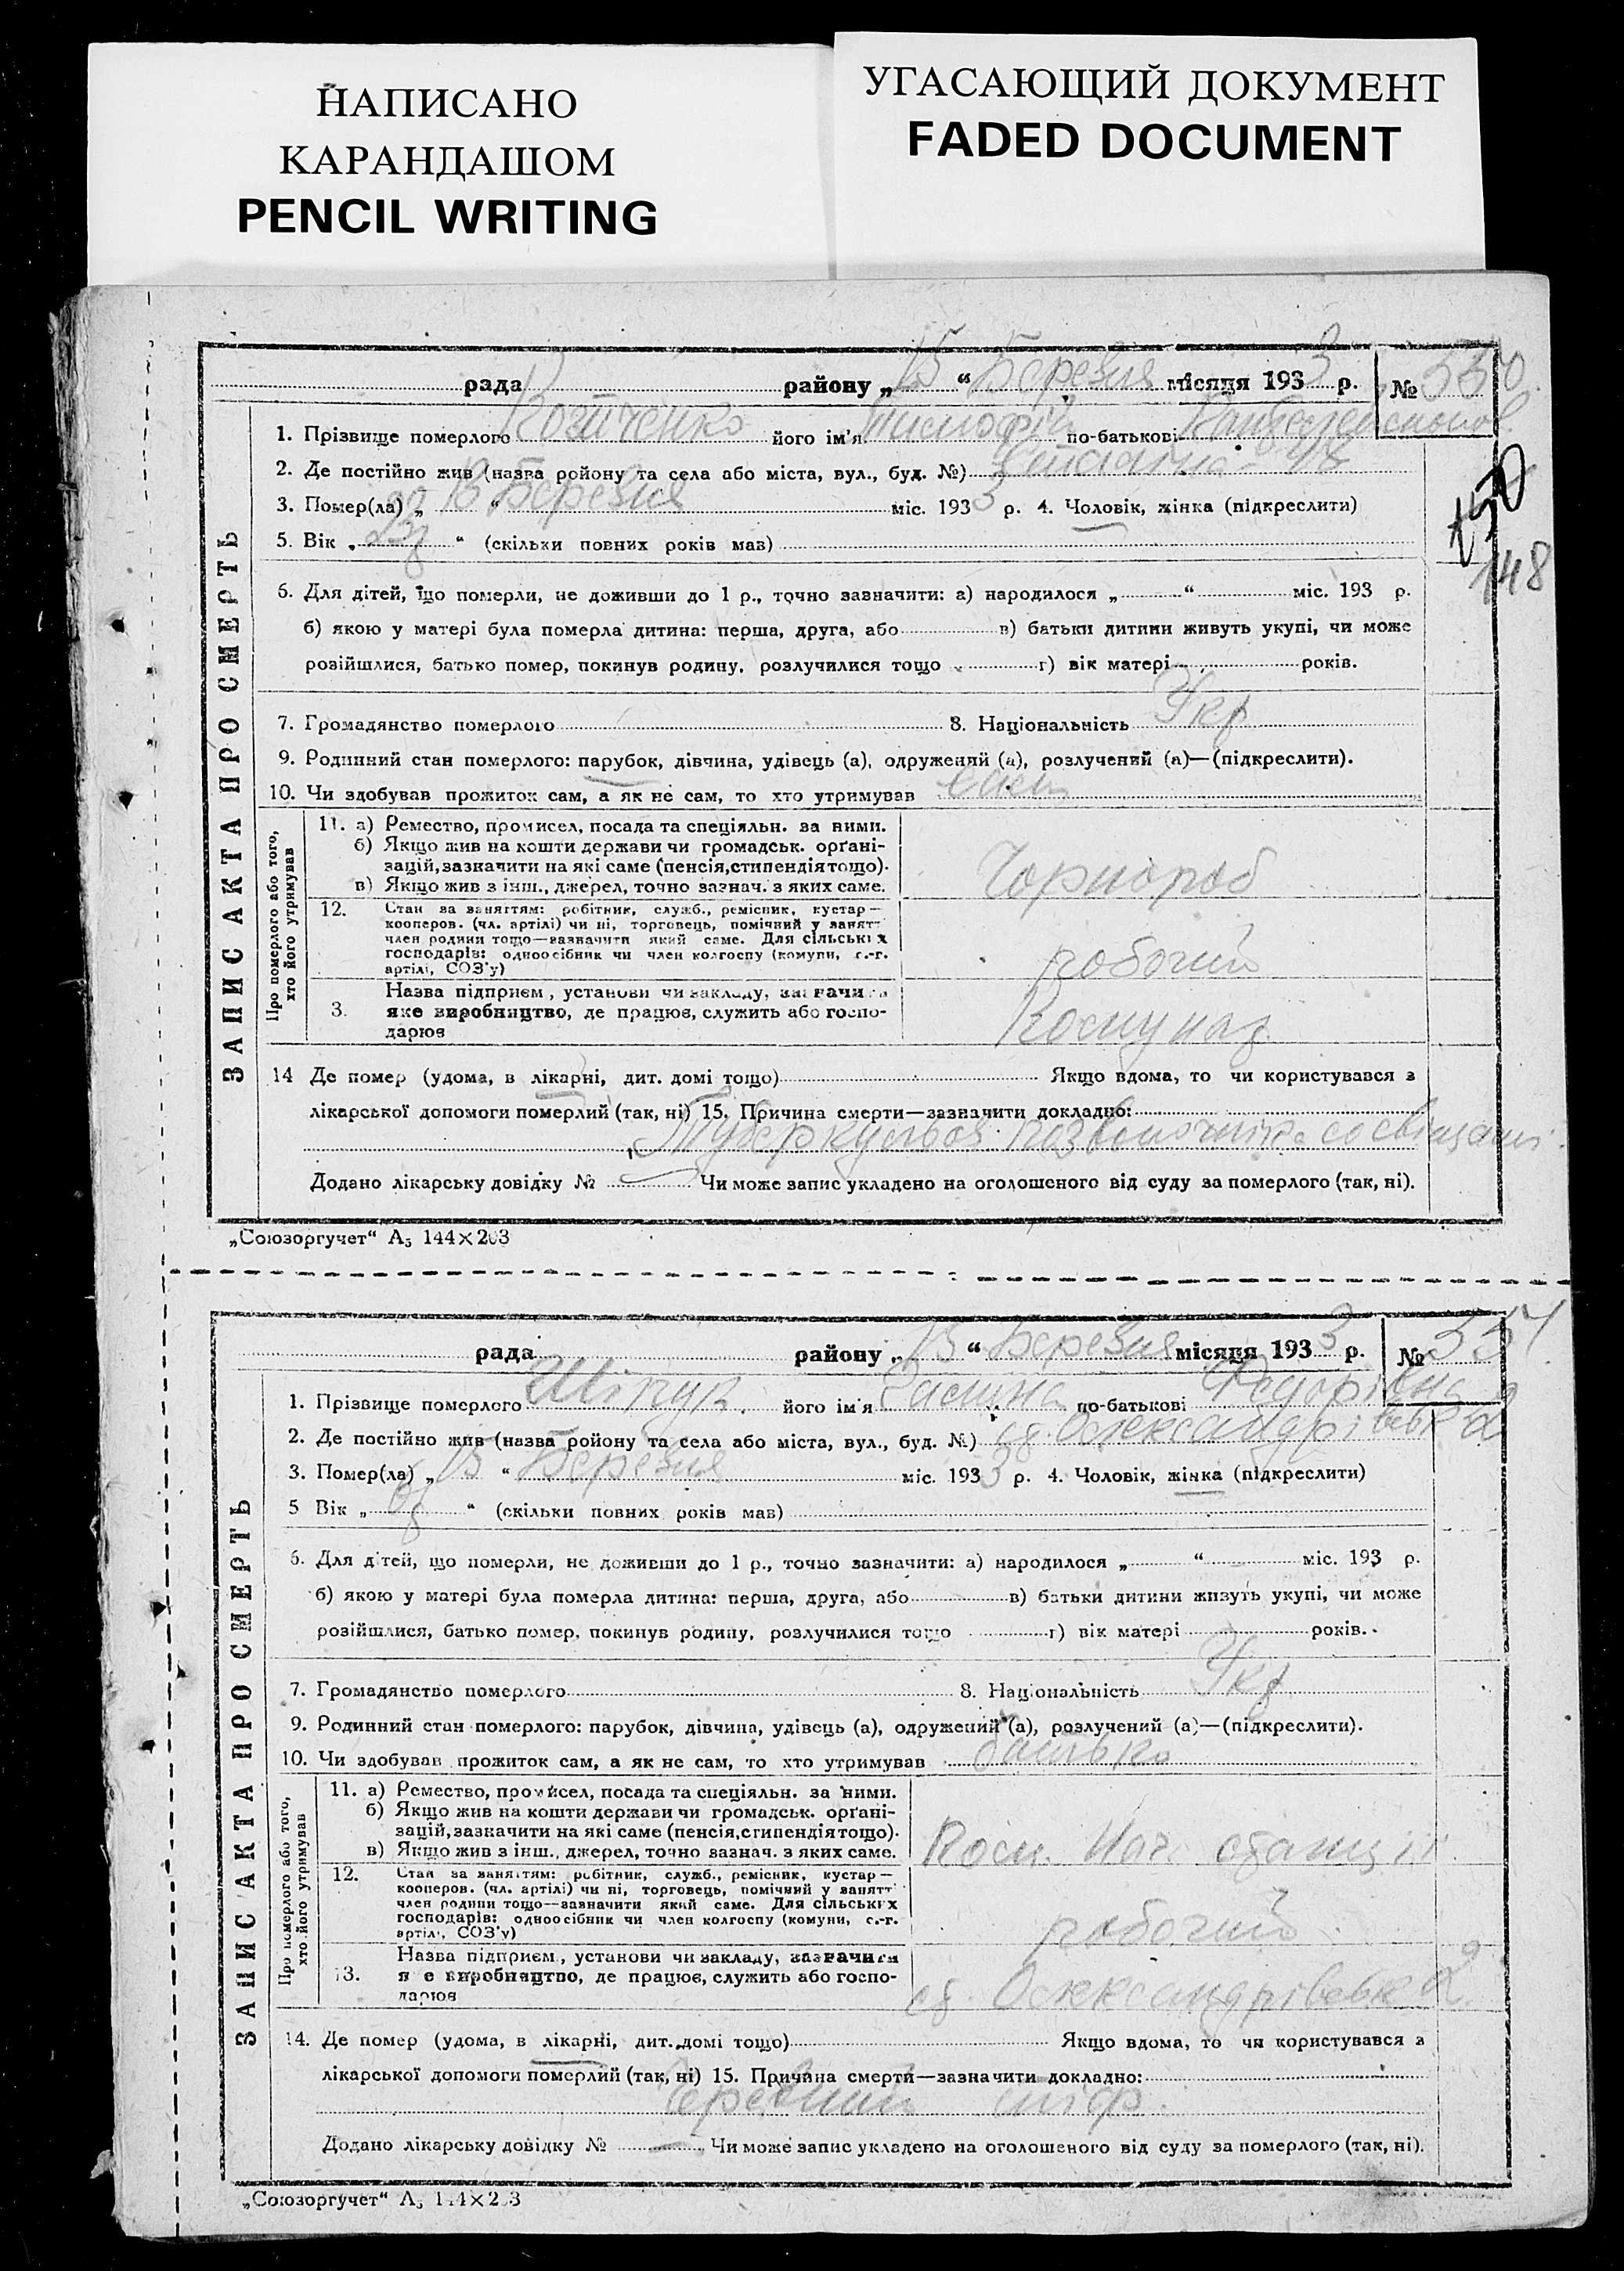 НАПИСАНО
КАРАНДАШОМ
PENCIL WRITING
УГАСАЮЩИЙ ДОКУМЕНТ
FADED DOCUMENT
ЗАПИС АКТА ПРО СМЕРТЬ
рада району „15“ Березня місяця 1933 р. № 550
1. Прізвище померлого його ім'я Тимофій по-батькові
2. Де постійно жив (назва ройону та села або міста, вул., буд. №)
3. Помер(ла) „ “ Березня міс. 1933 р. 4. Чоловік, жінка (підкреслити)
5. Вік „ “ (скільки повних років мав)
6. Для дітей, що померли, не доживши до 1 р., точно зазначити: а) народилося „ “ міс. 193 р.
б) якою у матері була померла дитина: перша, друга, або в) батьки дитини живуть укупі, чи може
розійшлися, батько помер, покинув родину, розлучилися тощо г) вік матері років.
7. Громадянство померлого 8. Національність Укр
9. Родинний стан померлого: парубок, дівчина, удівець (а), одружений (а), розлучений (а)—(підкреслити).
10. Чи здобував прожиток сам, а як не сам, то хто утримував сам
Про померлого або того, хто його утримував
11. а) Ремество, промисел, посада та спеціяльн. за ними.
б) Якщо жив на кошти держави чи громадськ. орґані-
зацій, зазначити на які саме (пенсія, стипендія тощо).
в) Якщо жив з інш., джерел, точно зазнач. з яких саме.
Чорнороб
12. Стан за заняттям: робітник, служб., ремісник, кустар—
кооперов. (чл. артілі) чи ні, торговець, помічний у занятт
член родини тощо—зазначити який саме. Для сільських
господарів: одноосібник чи член колгоспу (комуни, с.-г.
артілі, СОЗ'у)
робочий
3. Назва підприєм, установи чи закладу, зазначити
яке виробництво, де працює, служить або госпо-
дарює
14 Де помер (удома, в лікарні, дит. домі тощо) Якщо вдома, то чи користувався з
лікарської допомоги померлий (так, ні) 15. Причина смерти—зазначити докладно:
Туберкульоз позвоночніка со свищами
Додано лікарську довідку № Чи може запис укладено на оголошеного від суду за померлого (так, ні).
148
„Союзоргучет“ А5 144×203
ЗАПИС АКТА ПРО СМЕРТЬ
рада району „15“ Березня місяця 1933 р. № 551
1. Прізвище померлого його ім'я по-батькові Федорівна
2. Де постійно жив (назва ройону та села або міста, вул., буд. №) Олександрівськ
3. Помер(ла) „15“ Березня міс. 1933 р. 4. Чоловік, жінка (підкреслити)
5 Вік „ “ (скільки повних років мав)
6. Для дітей, що померли, не доживши до 1 р., точно зазначити: а) народилося „ “ міс. 193 р.
б) якою у матері була померла дитина: перша, друга, або в) батьки дитини живуть укупі, чи може
розійшлися, батько помер, покинув родину, розлучилися тощо г) вік матері років.
7. Громадянство померлого 8. Національність Укр
9. Родинний стан померлого: парубок, дівчина, удівець (а), одружений (а), розлучений (а)—(підкреслити).
10. Чи здобував прожиток сам, а як не сам, то хто утримував батько
Про померлого або того, хто його утримував
11. а) Ремество, промисел, посада та спеціяльн. за ними.
б) Якщо жив на кошти держави чи громадськ. орґані-
зацій, зазначити на які саме (пенсія, стипендія тощо).
в) Якщо жив з інш., джерел, точно зазнач. з яких саме.
Пом. Нач. станції
12. Стан за заняттям: робітник, служб., ремісник, кустар—
кооперов. (чл. артілі) чи ні, торговець, помічний у занятт
член родини тощо—зазначити який саме. Для сільських
господарів: одноосібник чи член колгоспу (комуни, с.-г.
артілі, СОЗ'у)
робочий
13. Назва підприєм, установи чи закладу, зазначити
яке виробництво, де працює, служить або госпо-
дарює
Олександрівськ
14. Де помер (удома, в лікарні, дит. домі тощо) Якщо вдома, то чи користувався з
лікарської допомоги померлий (так, ні) 15. Причина смерти—зазначити докладно:
Черевний тіф.
Додано лікарську довідку № Чи може запис укладено на оголошеного від суду за померлого (так, ні).
„Союзоргучет“ А5 144×203